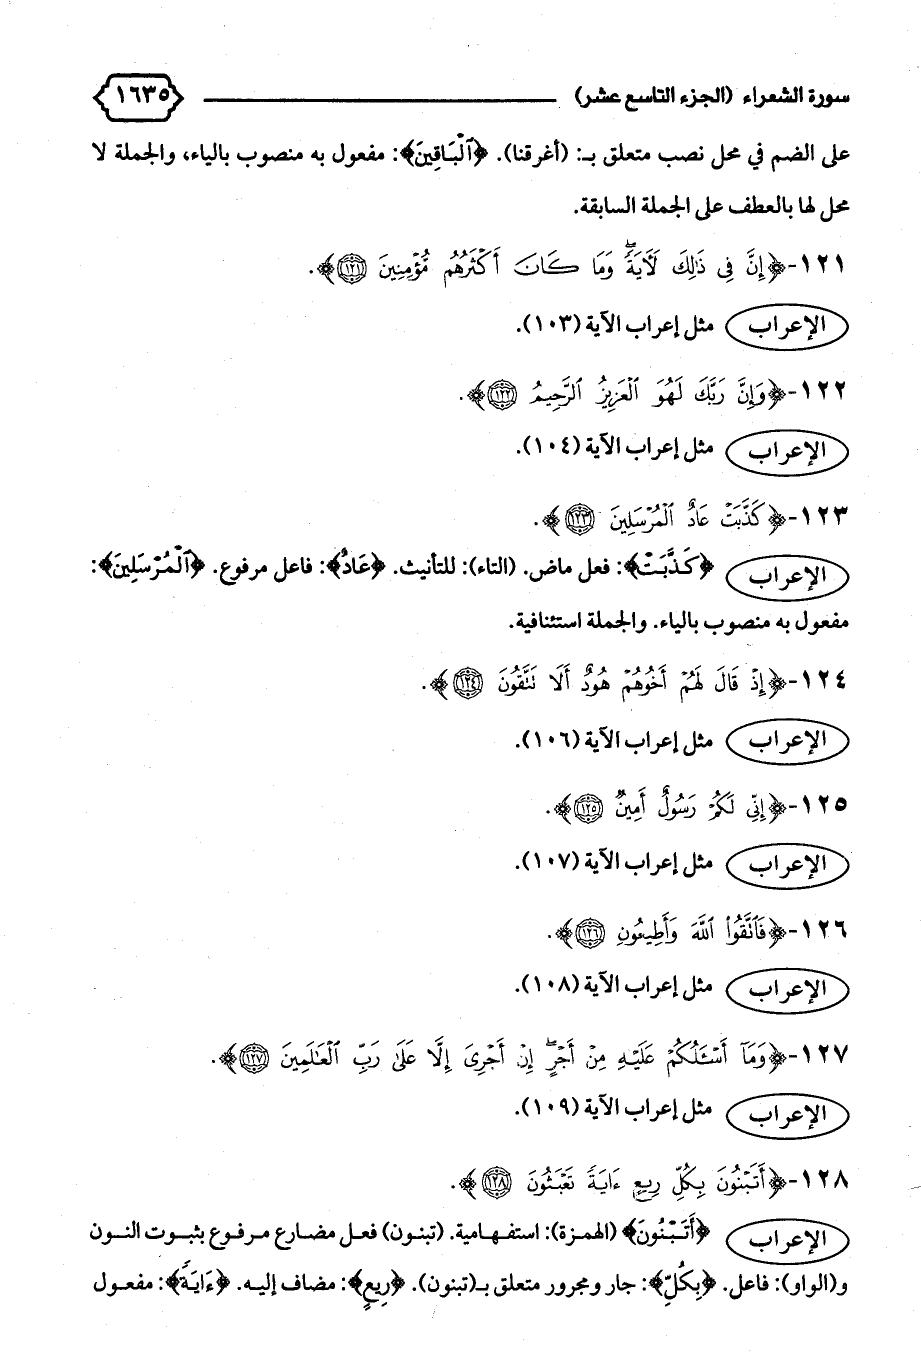 سورة الشعراء (الجزء التاسع عشر) ١٦٣٥
على الضم في محل نصب متعلق بـ: (أغرقنا). ﴿ٱلْبَاقِينَ﴾: مفعول به منصوب بالياء، والجملة لا
محل لها بالعطف على الجملة السابقة.
١٢١-﴿إِنَّ فِى ذَٰلِكَ لَـَٔايَةًۖ وَمَا كَانَ أَكْثَرُهُم مُّؤْمِنِينَ ١٢١﴾.
الإعراب مثل إعراب الآية (١٠٣).
١٢٢-﴿وَإِنَّ رَبَّكَ لَهُوَ ٱلْعَزِيزُ ٱلرَّحِيمُ ١٢٢﴾.
الإعراب مثل إعراب الآية (١٠٤).
١٢٣-﴿كَذَّبَتْ عَادٌ ٱلْمُرْسَلِينَ ١٢٣﴾.
الإعراب ﴿كَذَّبَتْ﴾: فعل ماض. (التاء): للتأنيث. ﴿عَادٌ﴾: فاعل مرفوع. ﴿ٱلْمُرْسَلِينَ﴾:
مفعول به منصوب بالياء. والجملة استئنافية.
١٢٤-﴿إِذْ قَالَ لَهُمْ أَخُوهُمْ هُودٌ أَلَا تَتَّقُونَ ١٢٤﴾.
الإعراب مثل إعراب الآية (١٠٦).
١٢٥-﴿إِنِّى لَكُمْ رَسُولٌ أَمِينٌ ١٢٥﴾.
الإعراب مثل إعراب الآية (١٠٧).
١٢٦-﴿فَٱتَّقُوا۟ ٱللَّهَ وَأَطِيعُونِ ١٢٦﴾.
الإعراب مثل إعراب الآية (١٠٨).
١٢٧-﴿وَمَآ أَسْـَٔلُكُمْ عَلَيْهِ مِنْ أَجْرٍۖ إِنْ أَجْرِىَ إِلَّا عَلَىٰ رَبِّ ٱلْعَٰلَمِينَ ١٢٧﴾.
الإعراب مثل إعراب الآية (١٠٩).
١٢٨-﴿أَتَبْنُونَ بِكُلِّ رِيعٍ ءَايَةً تَعْبَثُونَ ١٢٨﴾.
الإعراب ﴿أَتَبْنُونَ﴾ (الهمزة): استفهامية. (تبنون) فعل مضارع مرفوع بثبوت النون
و(الواو): فاعل. ﴿بِكُلِّ﴾: جار ومجرور متعلق بـ(تبنون). ﴿رِيعٍ﴾: مضاف إليه. ﴿ءَايَةً﴾: مفعول